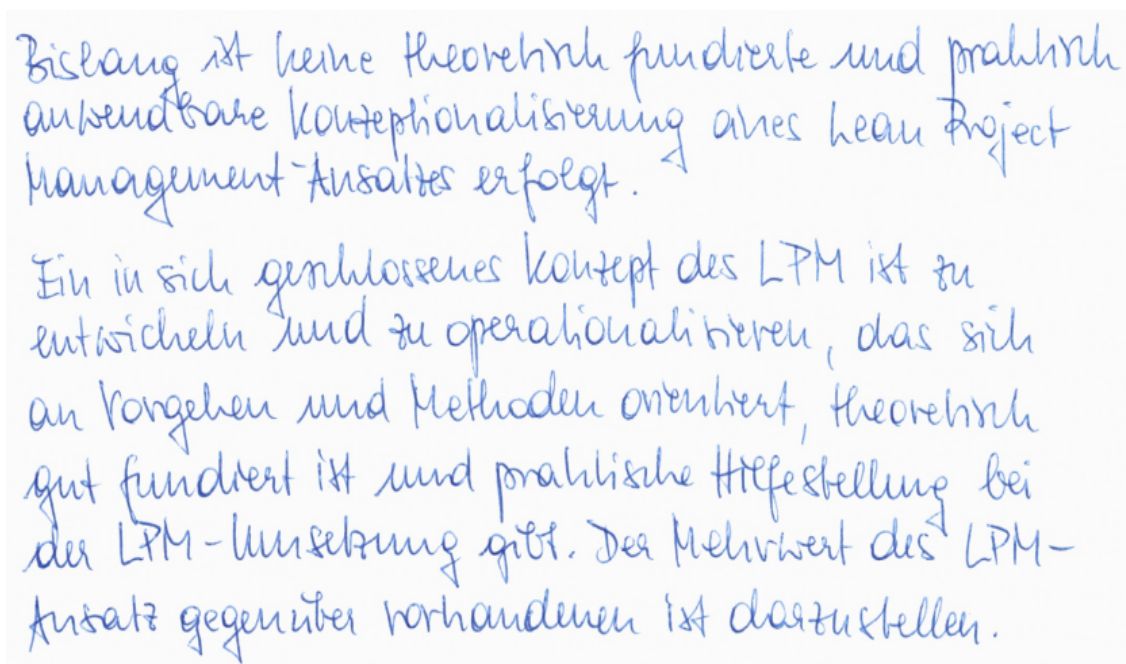 Bislang ist keine theoretisch fundierte und praktisch
anwendbare Konzeptionalisierung eines Lean Project
Management-Ansatzes erfolgt.
Ein in sich geschlossenes Konzept des LPM ist zu
entwickeln und zu operationalisieren, das sich
an Vorgehen und Methoden orientiert, theoretisch
gut fundiert ist und praktische Hilfestellung bei
der LPM-Umsetzung gibt. Der Mehrwert des LPM-
Ansatz gegenüber vorhandenen ist darzustellen.